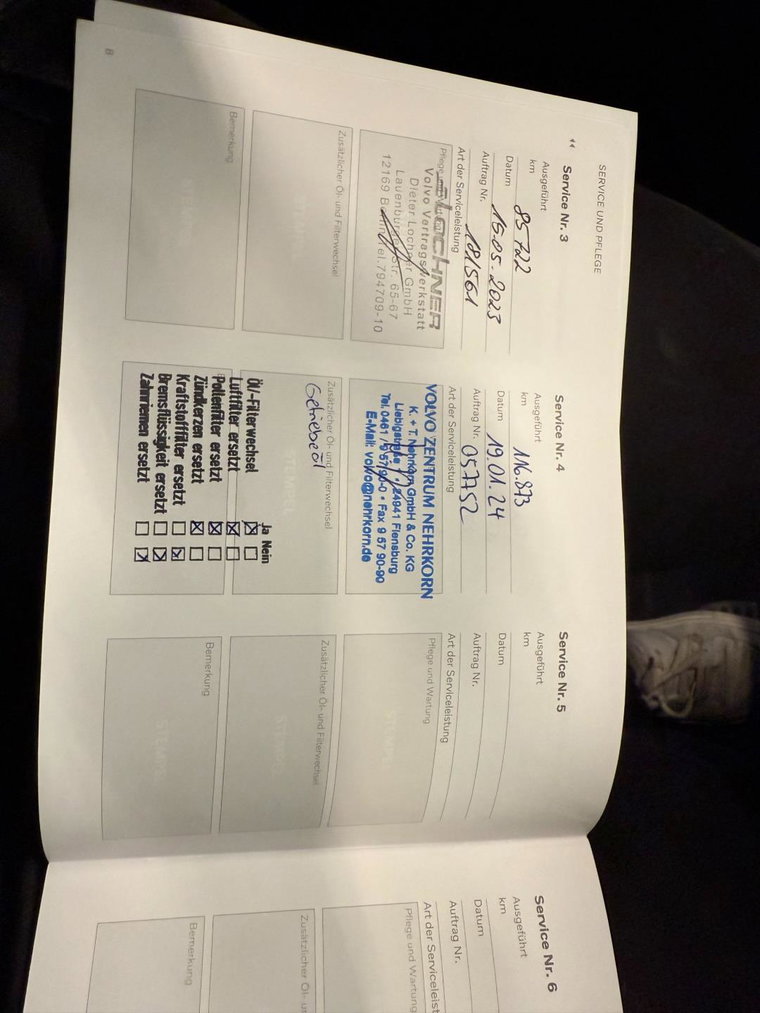 SERVICE UND PFLEGE
Service Nr. 3
Ausgeführt
km 85722
Datum 15.05.2023
Auftrag Nr. 181561
Art der Serviceleistung
Pflege
LOCHNER
Volvo Vertragswerkstatt
Dieter Lochner GmbH
Lauenburger Str. 65-67
12169 Tel.794709-10
Zusätzlicher Öl- und Filterwechsel
Bemerkung
Service Nr. 4
Ausgeführt
km 116.873
Datum 19.01.24
Auftrag Nr. 057152
Art der Serviceleistung
VOLVO ZENTRUM NEHRKORN
K. + T. Nehrkorn GmbH & Co. KG
24941 Flensburg
Tel. 0461 / 9 57 90-0 • Fax 9 57 90-90
E-Mail: volvo@nehrkorn.de
Zusätzlicher Öl- und Filterwechsel
Getriebeöl
Ja Nein
Öl-/Filterwechsel ☒ ☐
Luftfilter ersetzt ☒ ☐
Pollenfilter ersetzt ☒ ☐
Zündkerzen ersetzt ☒ ☐
Kraftstoffilter ersetzt ☐ ☒
Bremsflüssigkeit ersetzt ☐ ☒
Zahnriemen ersetzt ☐ ☒
Service Nr. 5
Ausgeführt
km
Datum
Auftrag Nr.
Art der Serviceleistung
Pflege und Wartung
STEMPEL
Zusätzlicher Öl- und Filterwechsel
STEMPEL
Bemerkung
STEMPEL
8
Service Nr. 6
Ausgeführt
km
Datum
Auftrag Nr.
Art der Serviceleist
Pflege und Wartung
Zusätzlicher Öl- u
Bemerkung